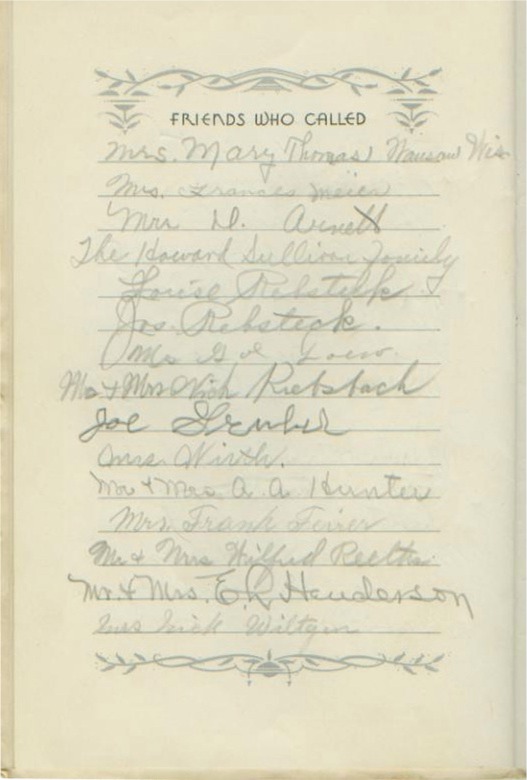 FRIENDS WHO CALLED
Mrs. Mary Thomas Wausau Wis
Mrs. Frances Meier
Mrs D. Arnett
The Howard Sullivan Family
Louise Rebsteck
Jos. Rebsteck.
Mrs
Mr & Mrs Nich Rietsbach
Joe Gruber
Mrs. Wirth.
Mr & Mrs A. A. Hunter
Mrs. Frank
Mr & Mrs Wilfred
Mr. & Mrs. E. R. Henderson
Mrs Nick Wiltgen